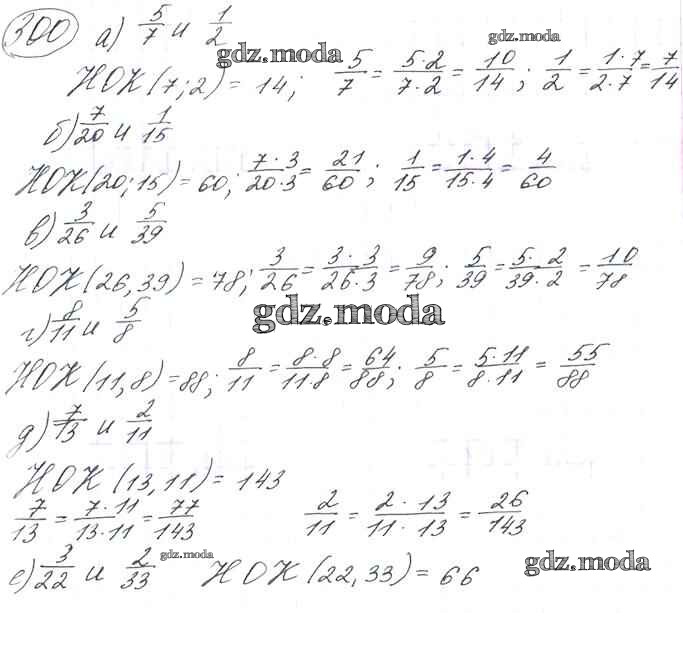 300 а) 5/7 и 1/2
gdz.moda gdz.moda
НОК(7;2) = 14; 5/7 = 5·2/7·2 = 10/14; 1/2 = 1·7/2·7 = 7/14
б) 7/20 и 1/15
НОК(20;15) = 60; 7·3/20·3 = 21/60; 1/15 = 1·4/15·4 = 4/60
в) 3/26 и 5/39
НОК(26,39) = 78; 3/26 = 3·3/26·3 = 9/78; 5/39 = 5·2/39·2 = 10/78
gdz.moda
г) 8/11 и 5/8
НОК(11,8) = 88; 8/11 = 8·8/11·8 = 64/88; 5/8 = 5·11/8·11 = 55/88
д) 7/13 и 2/11
НОК(13,11) = 143
7/13 = 7·11/13·11 = 77/143 2/11 = 2·13/11·13 = 26/143
е) 3/22 и 2/33 НОК(22,33) = 66
gdz.moda gdz.moda